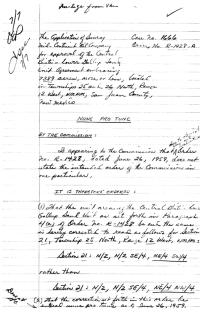 The Application of Sunray
Mid-Continent Oil Company
for Approval of the Central
Bisti Lower Gallup Sand
Unit Agreement embracing
7389 acres, more or less, located
in Township 25 and 26 North, Range
12 West, NMPM, San Juan County,
New Mexico
Case No. 1666
Order No. R-1428-A
NUNC PRO TUNC
BY THE COMMISSION:
It appearing to the Commission that Order
No. R-1428, dated June 26, 1959, does not
state the intended order of the Commission in
one particular,
IT IS THEREFORE ORDERED:
(1) That the unit area of the Central Bisti Lower
Gallup Sand Unit as set forth in Paragraph
of Order No. R-1428 be and the same
is hereby corrected to read as follows for Section
21, Township 25 North, Range 12 West, NMPM:
Section 21: N/2, N/2 SE/4, NE/4 SW/4
rather than
Section 21: N/2, N/2 SE/4, NE/4 NW/4
(2) That the correction set forth in this order be
entered nunc pro tunc as of June 26, 1959.